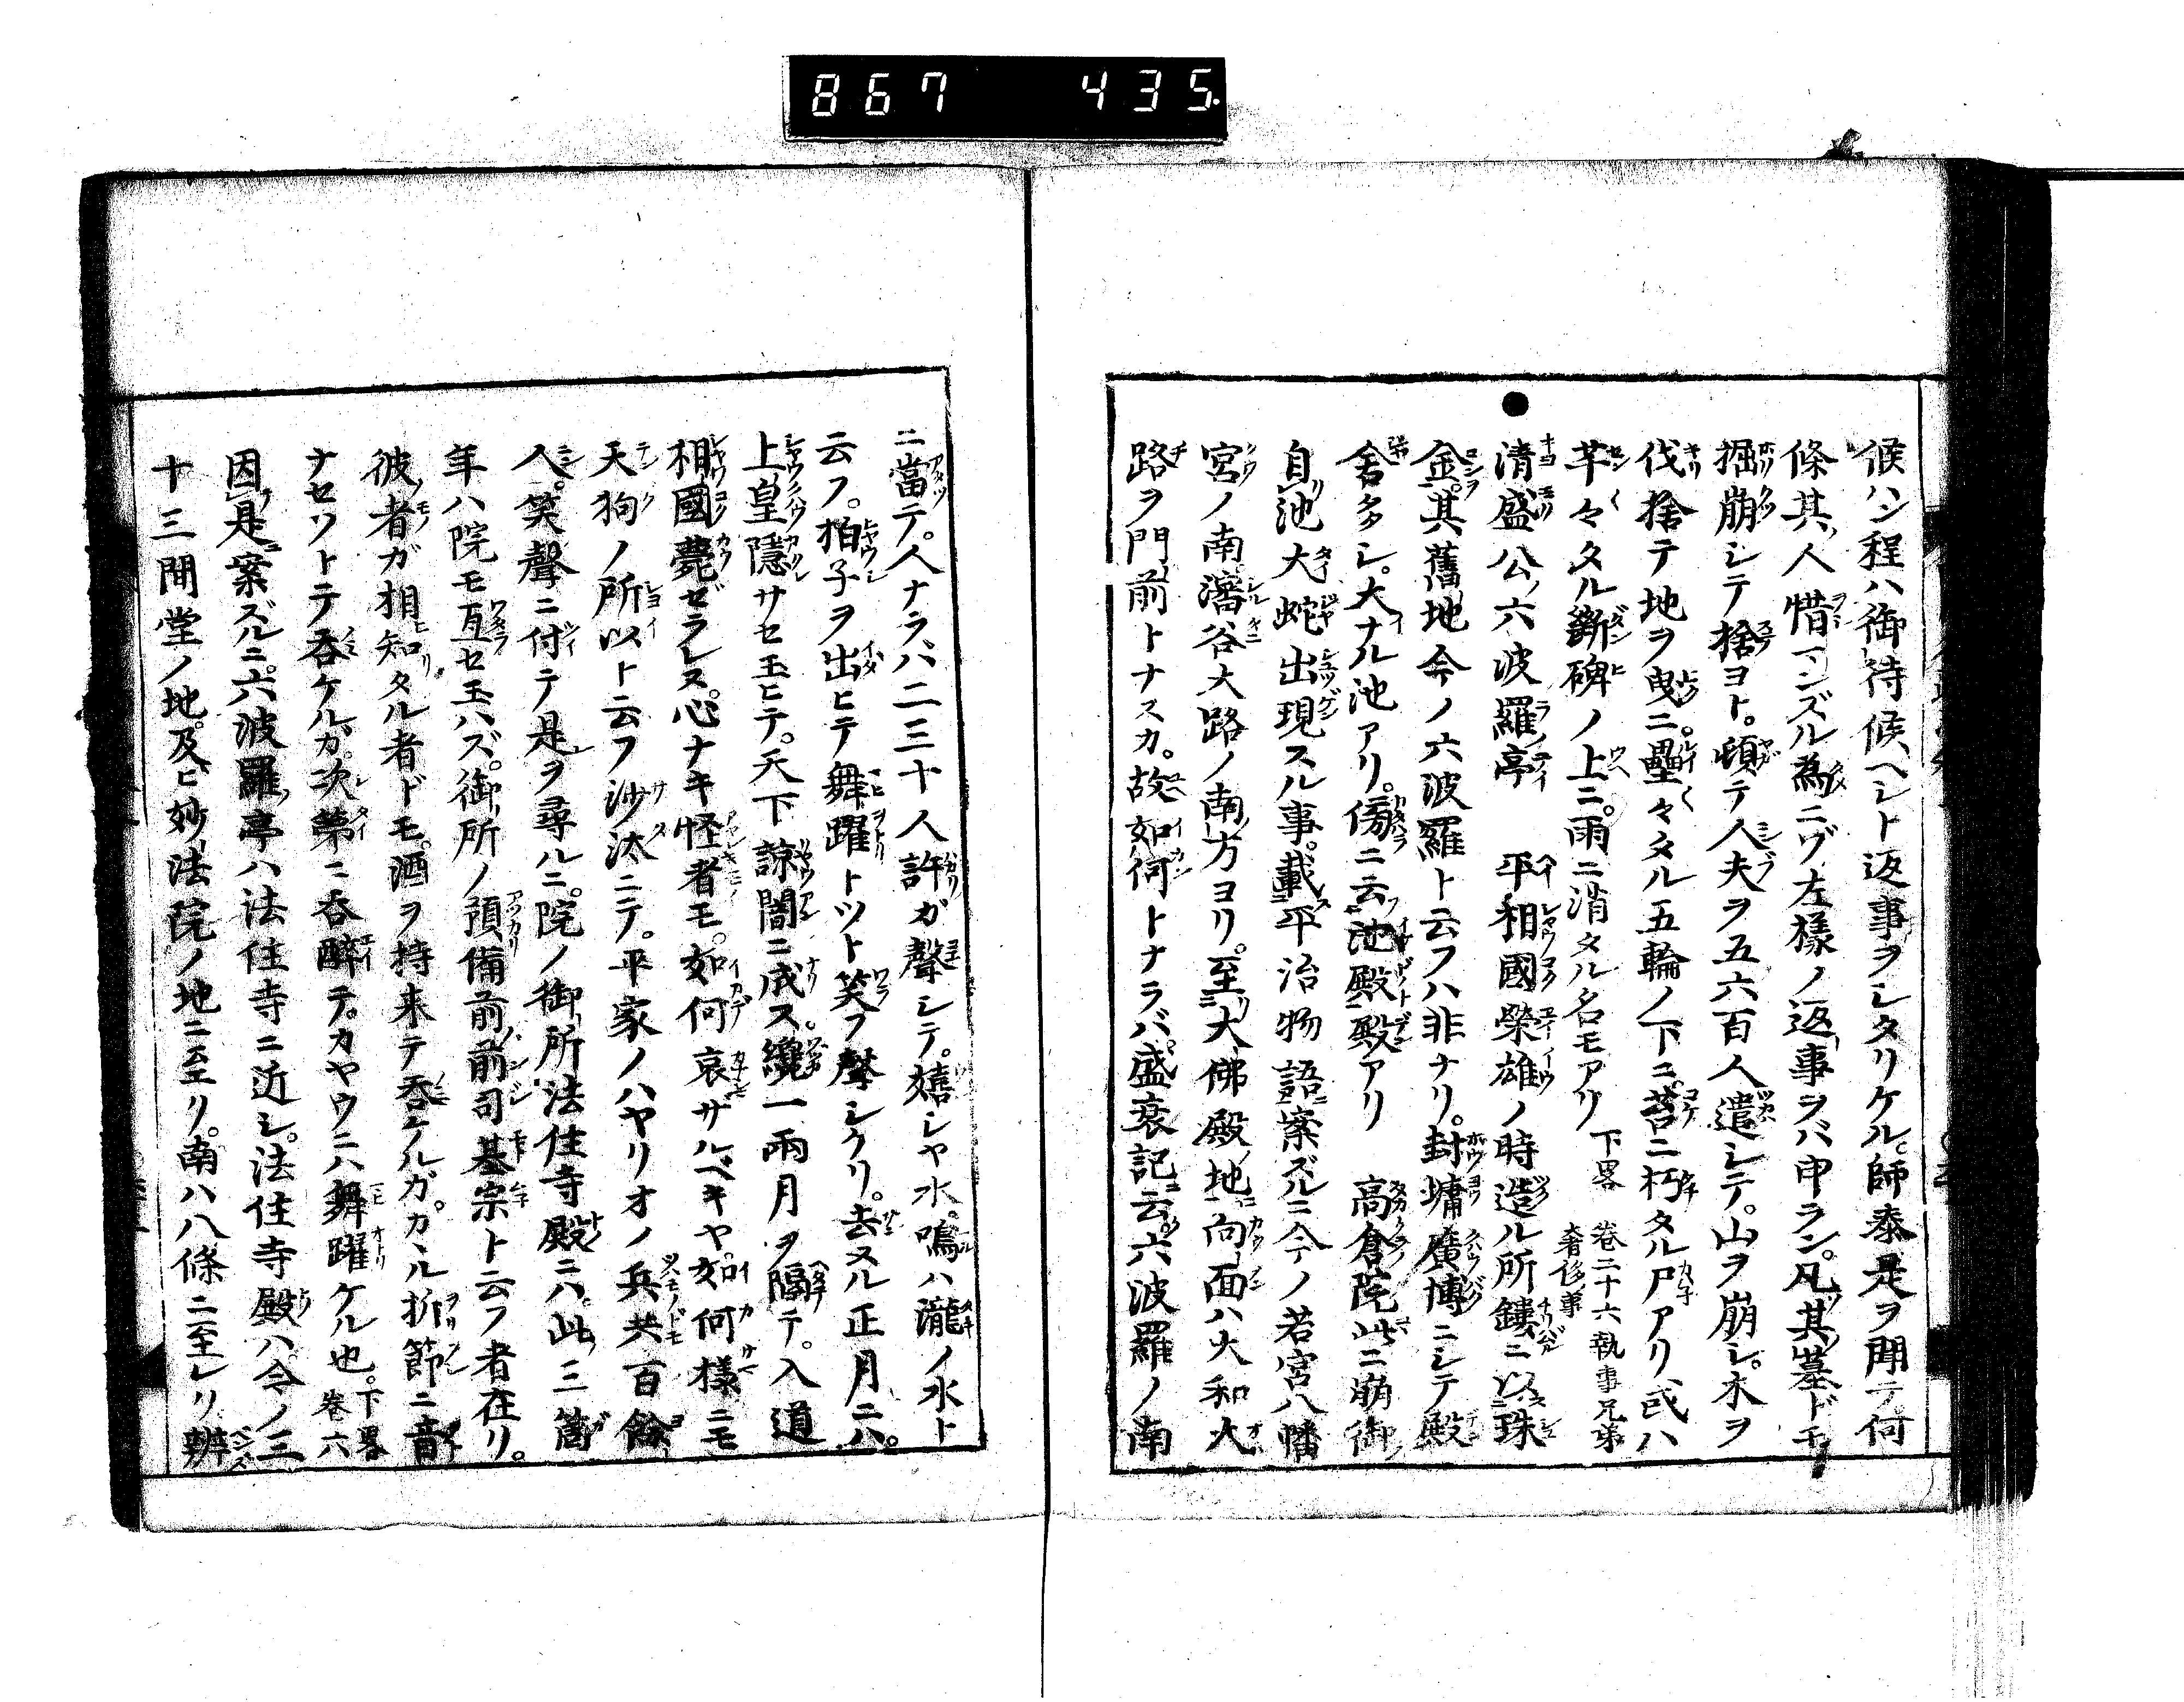 867 435
候ハン程ハ御待候ヘシト返事ヲシタリケル。師泰是ヲ聞テ何
條其人惜マンズル爲ニゾ左樣ノ返事ヲバ申ラン。凡其墓ドモ
掘崩シテ捨ヨト。頓テ人夫ヲ五六百人遣シテ。山ヲ崩シ。木ヲ
伐捨テ地ヲ曳ニ。壘々タル五輪ノ下ニ。苔ニ朽タル尸アリ或ハ
芊々タル斷碑ノ上ニ。雨ニ消タル名モアリ 下畧 卷二十六執事兄弟奢侈事
●清盛公六波羅亭 平相國榮雄ノ時造ル所鏤ニ以珠
金。其舊地今ノ六波羅ト云フハ非ナリ。封墉廣博ニシテ殿
舍多シ。大ナル池アリ。傍ニ云池殿殿アリ 高倉院此ニ崩御
自池大蛇出現スル事。載平治物語案ズルニ今ノ若宮八幡
宮ノ南瀋谷大路ノ南方ヨリ。至大佛殿地向面ハ大和大
路ヲ門前トナスカ。故如何トナラバ。盛衰記云六波羅ノ南
ニ當テ。人ナラバ二三十人許ガ聲シテ。嬉シヤ水。鳴ハ瀧ノ水ト
云フ。拍子ヲ出ヒテ舞躍トツト笑フ聲シクリ。去スル正月ニハ。
上皇隱サセ玉ヒテ。天下諒闇ニ成ス。纔一兩月ヲ隔テ。入道
相國薨ゼラレヌ。心ナキ怪者モ。如何哀ザルベキヤ。如何樣ニモ
天狗ノ所以ト云フ沙汰ニテ。平家ノハヤリオノ兵共百餘
人。笑聲ニ付テ是ヲ尋ルニ。院ノ御所法住寺殿ニハ。此三箇
年ハ院モ亙セ玉ハズ。御所ノ預備前前司基宗ト云フ者在リ。
彼者ガ相知タル者ドモ。酒ヲ持来テ呑ケルガ。カヽル折節ニ音
ナセソトテ呑ケルガ。次第ニ呑醉テ。カヤウニハ舞躍ケル也。下畧 卷六
因是案ズルニ。六波羅亭ハ法住寺ニ近シ。法住寺殿ハ今ノ三
十三間堂ノ地。及ヒ妙法院ノ地ニ至リ。南ハ八條ニ至レリ辨